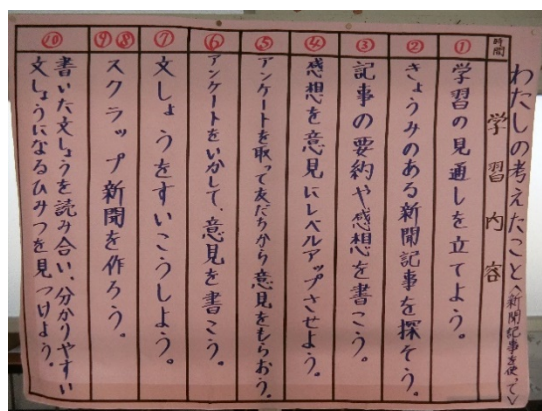 わたしの考えたこと〈新聞記事を使って〉
時間
学習内容
①
学習の見通しを立てよう。
②
きょうみのある新聞記事を探そう。
③
記事の要約や感想を書こう。
④
感想を意見にレベルアップさせよう。
⑤
アンケートを取って友だちから意見をもらおう。
⑥
アンケートをいかして、意見を書こう。
⑦
文しょうをすいこうしよう。
⑧⑨
スクラップ新聞を作ろう。
⑩
書いた文しょうを読み合い、分かりやすい
文しょうになるひみつを見つけよう。